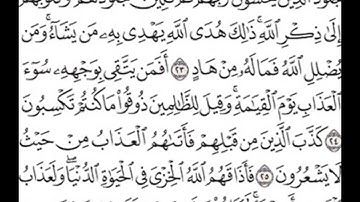 جُلُودُ ٱلَّذِينَ يَخْشَوْنَ رَبَّهُمْ ثُمَّ تَلِينُ جُلُودُهُمْ وَقُلُوبُهُمْ
إِلَىٰ ذِكْرِ ٱللَّهِ ۚ ذَٰلِكَ هُدَى ٱللَّهِ يَهْدِى بِهِۦ مَن يَشَآءُ ۚ وَمَن
يُضْلِلِ ٱللَّهُ فَمَا لَهُۥ مِنْ هَادٍ ٢٣ أَفَمَن يَتَّقِى بِوَجْهِهِۦ سُوٓءَ
ٱلْعَذَابِ يَوْمَ ٱلْقِيَٰمَةِ ۚ وَقِيلَ لِلظَّٰلِمِينَ ذُوقُوا۟ مَا كُنتُمْ تَكْسِبُونَ
٢٤ كَذَّبَ ٱلَّذِينَ مِن قَبْلِهِمْ فَأَتَىٰهُمُ ٱلْعَذَابُ مِنْ حَيْثُ
لَا يَشْعُرُونَ ٢٥ فَأَذَاقَهُمُ ٱللَّهُ ٱلْخِزْىَ فِى ٱلْحَيَوٰةِ ٱلدُّنْيَا ۖ وَلَعَذَابُ